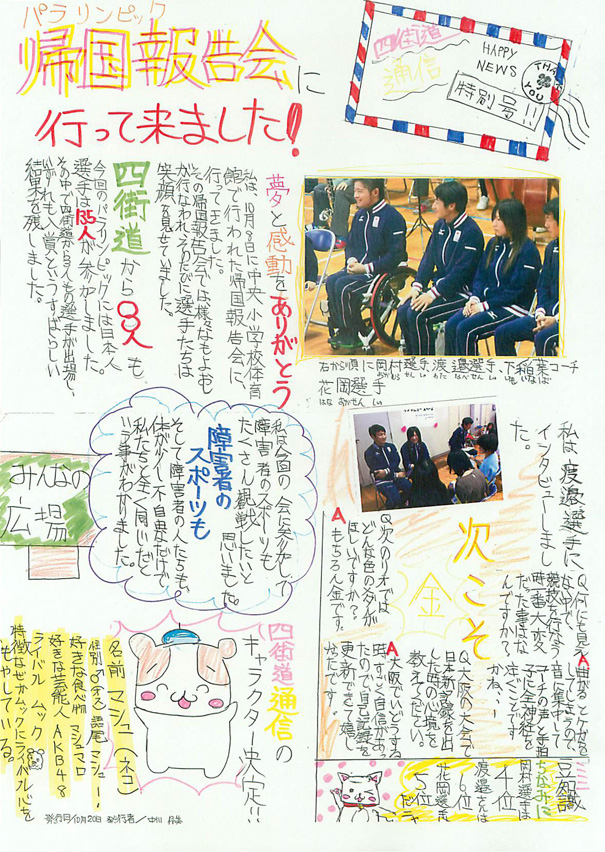 パラリンピック
帰国報告会に
行って来ました!
四街道
通信
HAPPY
NEWS
THANK
YOU
特別号!!
夢と感動をありがとう
私は、10月9日に中央小学校体育
館で行われた帰国報告会に、
行ってきました。
その帰国報告会では様々なもよおし
が行なわれ、そのたびに選手たちは
笑顔を見せていました。
四街道から3人も
今回のパラリンピックには日本人
選手は135人が参加しました。
その中で四街道から3人もの選手が出場し、
いずれも入賞というすばらしい
結果を残しました。
右から順に岡村選手、渡邉選手、下稲葉コーチ
花岡選手
はな おか せん しゅ
私は、渡邉選手に
インタビューしまし
た。
次こそ
金
Q.次のリオでは
どんな色のメダルが
ほしいですか?
Aもちろん金です。
Q.何にも見え
ない中で、
競技を行なう
時一番大変
だった事はな
んですか?
A曲がるとケガを
してしまうので、
音に集中して
コーチの声と手拍
子に全神経を
注ぐことです
かね、!
Q.大阪の大会で
日本新記録を出
した時の心境を
教えてください。
A大阪でいどうする
時すごく自信があっ
たので自己記録を
更新できて嬉し
かたです。
豆知識
ちなみに
岡村選手は
4位
渡邉さんは
6位
花岡選手
5位
だよ
みんなの
広場
私は今回の会に参加して
障害者のスポーツも
たくさん観戦したいと
思いました。
障害者の
スポーツも
そして、障害者の人たちも、
体が少し不自由なだけで、
私たちと全く同じだと
いう事がわかりました。
四街道通信の
キャラクター決定!!
名前 マシュ(ネコ)
性別♂オス 語尾 マシュー!
好きな食べ物 マシュマロ
好きな芸能人 AKB48
ライバル ムック
特徴なぜかムックにライバル心を
もやしている。
発行日/10月20日 発行者/中川